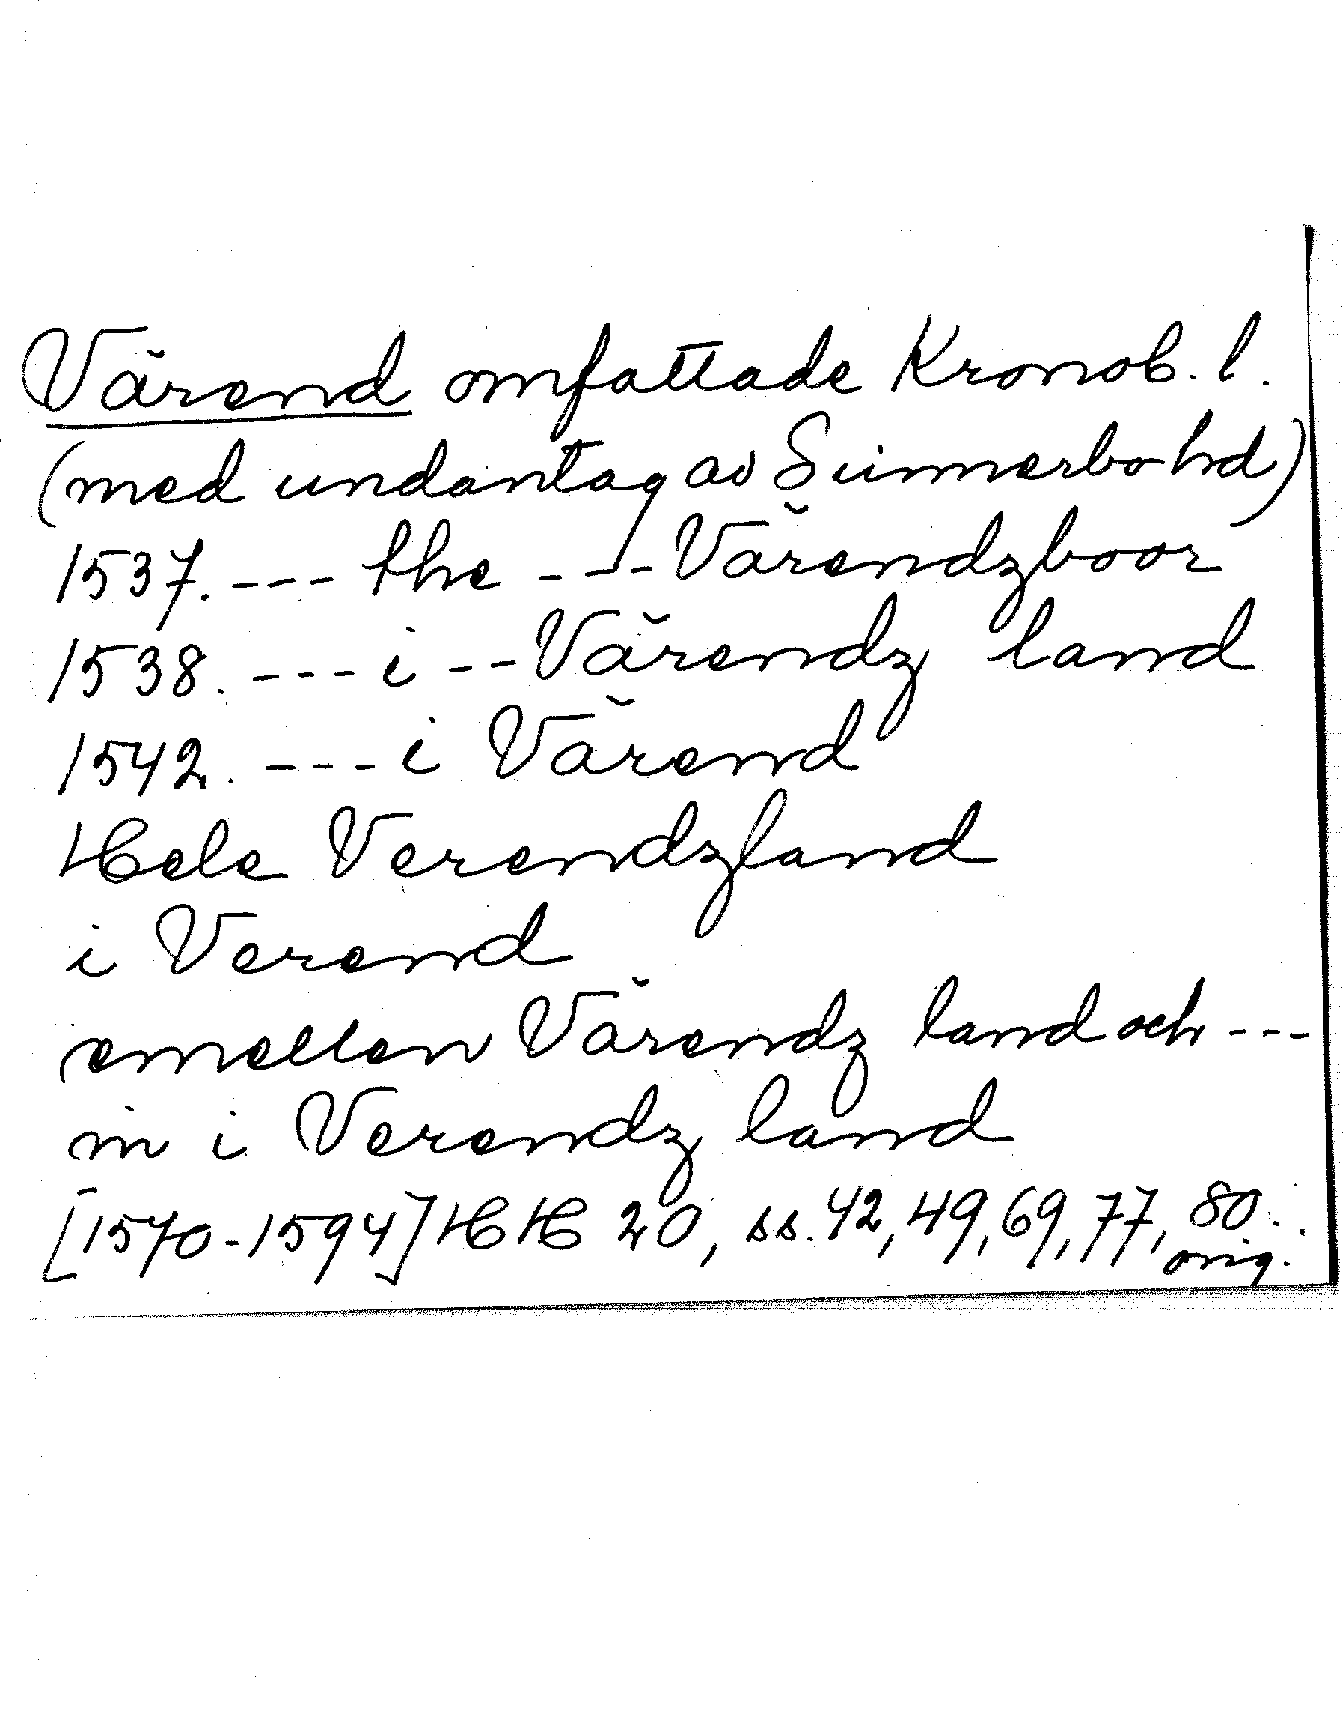 Värend omfattade Kronob. l.
(med undantag av Sunnerbo hd)
1537. --- the --- Värendzboor
1538. --- i -- Värendz land
1542. --- i Värend
Hele Verendzland
i Verend
emellen Värendz land och ---
in i Verendz land
[1570-1594] HH 20, ss. 42, 49, 69, 77, 80.
orig.